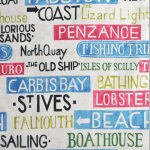 COAST the Lizard Light
house
LORIOUS SANDS PENZANCE
North Quay FISHING TRIP
URO THE OLD SHIP ISLES OF SCILLY
CARBIS BAY BATHING
ST·IVES· LOBSTER
FALMOUTH BEACH
SAILING· BOATHOUSE